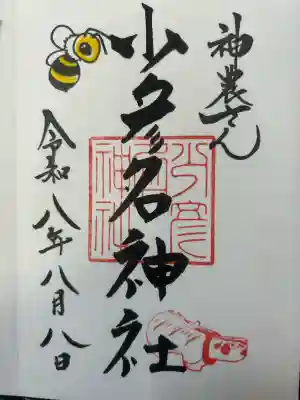 神農さん
少彦名神社
令和八年八月八日
少彦名神社